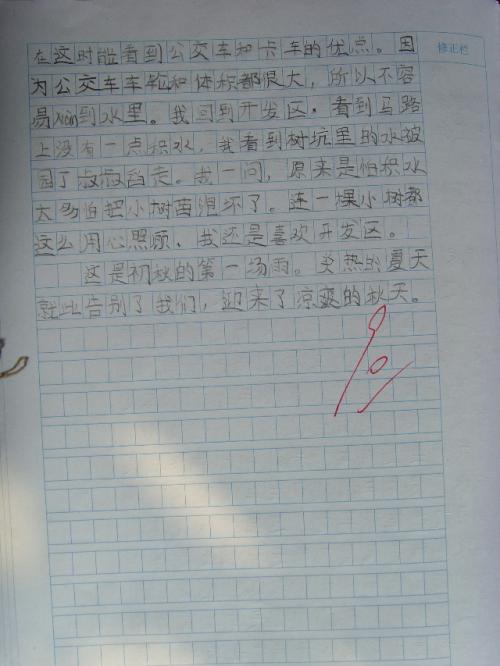 在这时能看到公交车和卡车的优点。因
为公交车车轮和体积都很大，所以不容
易xiàn到水里。我回到开发区，看到马路
上没有一点积水，我看到树坑里的水被
园丁叔叔舀走。我一问，原来是怕积水
太多怕把小树苗泡坏了。连一棵小树都
这么用心照顾，我还是喜欢开发区。
这是初秋的第一场雨。炎热的夏天
就此告别了我们，迎来了凉爽的秋天。
修正栏